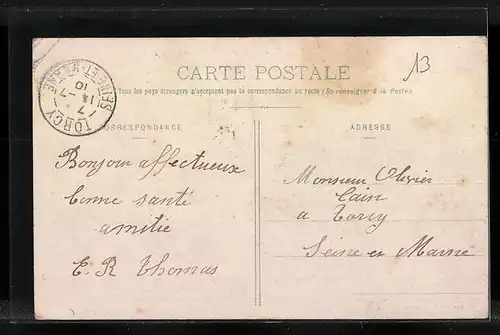 CARTE POSTALE
13
Tous les pays étrangers n'acceptent pas la correspondance au recto (Se renseigner à la Poste)
TORCY
SEINE-ET-MARNE
7-7
14
10
CORRESPONDANCE
ADRESSE
Bonjour affectueux
bonne santé
amitie
E. R Thomas
Monsieur Olivier
Cain
a Torcy
Seine et Marne